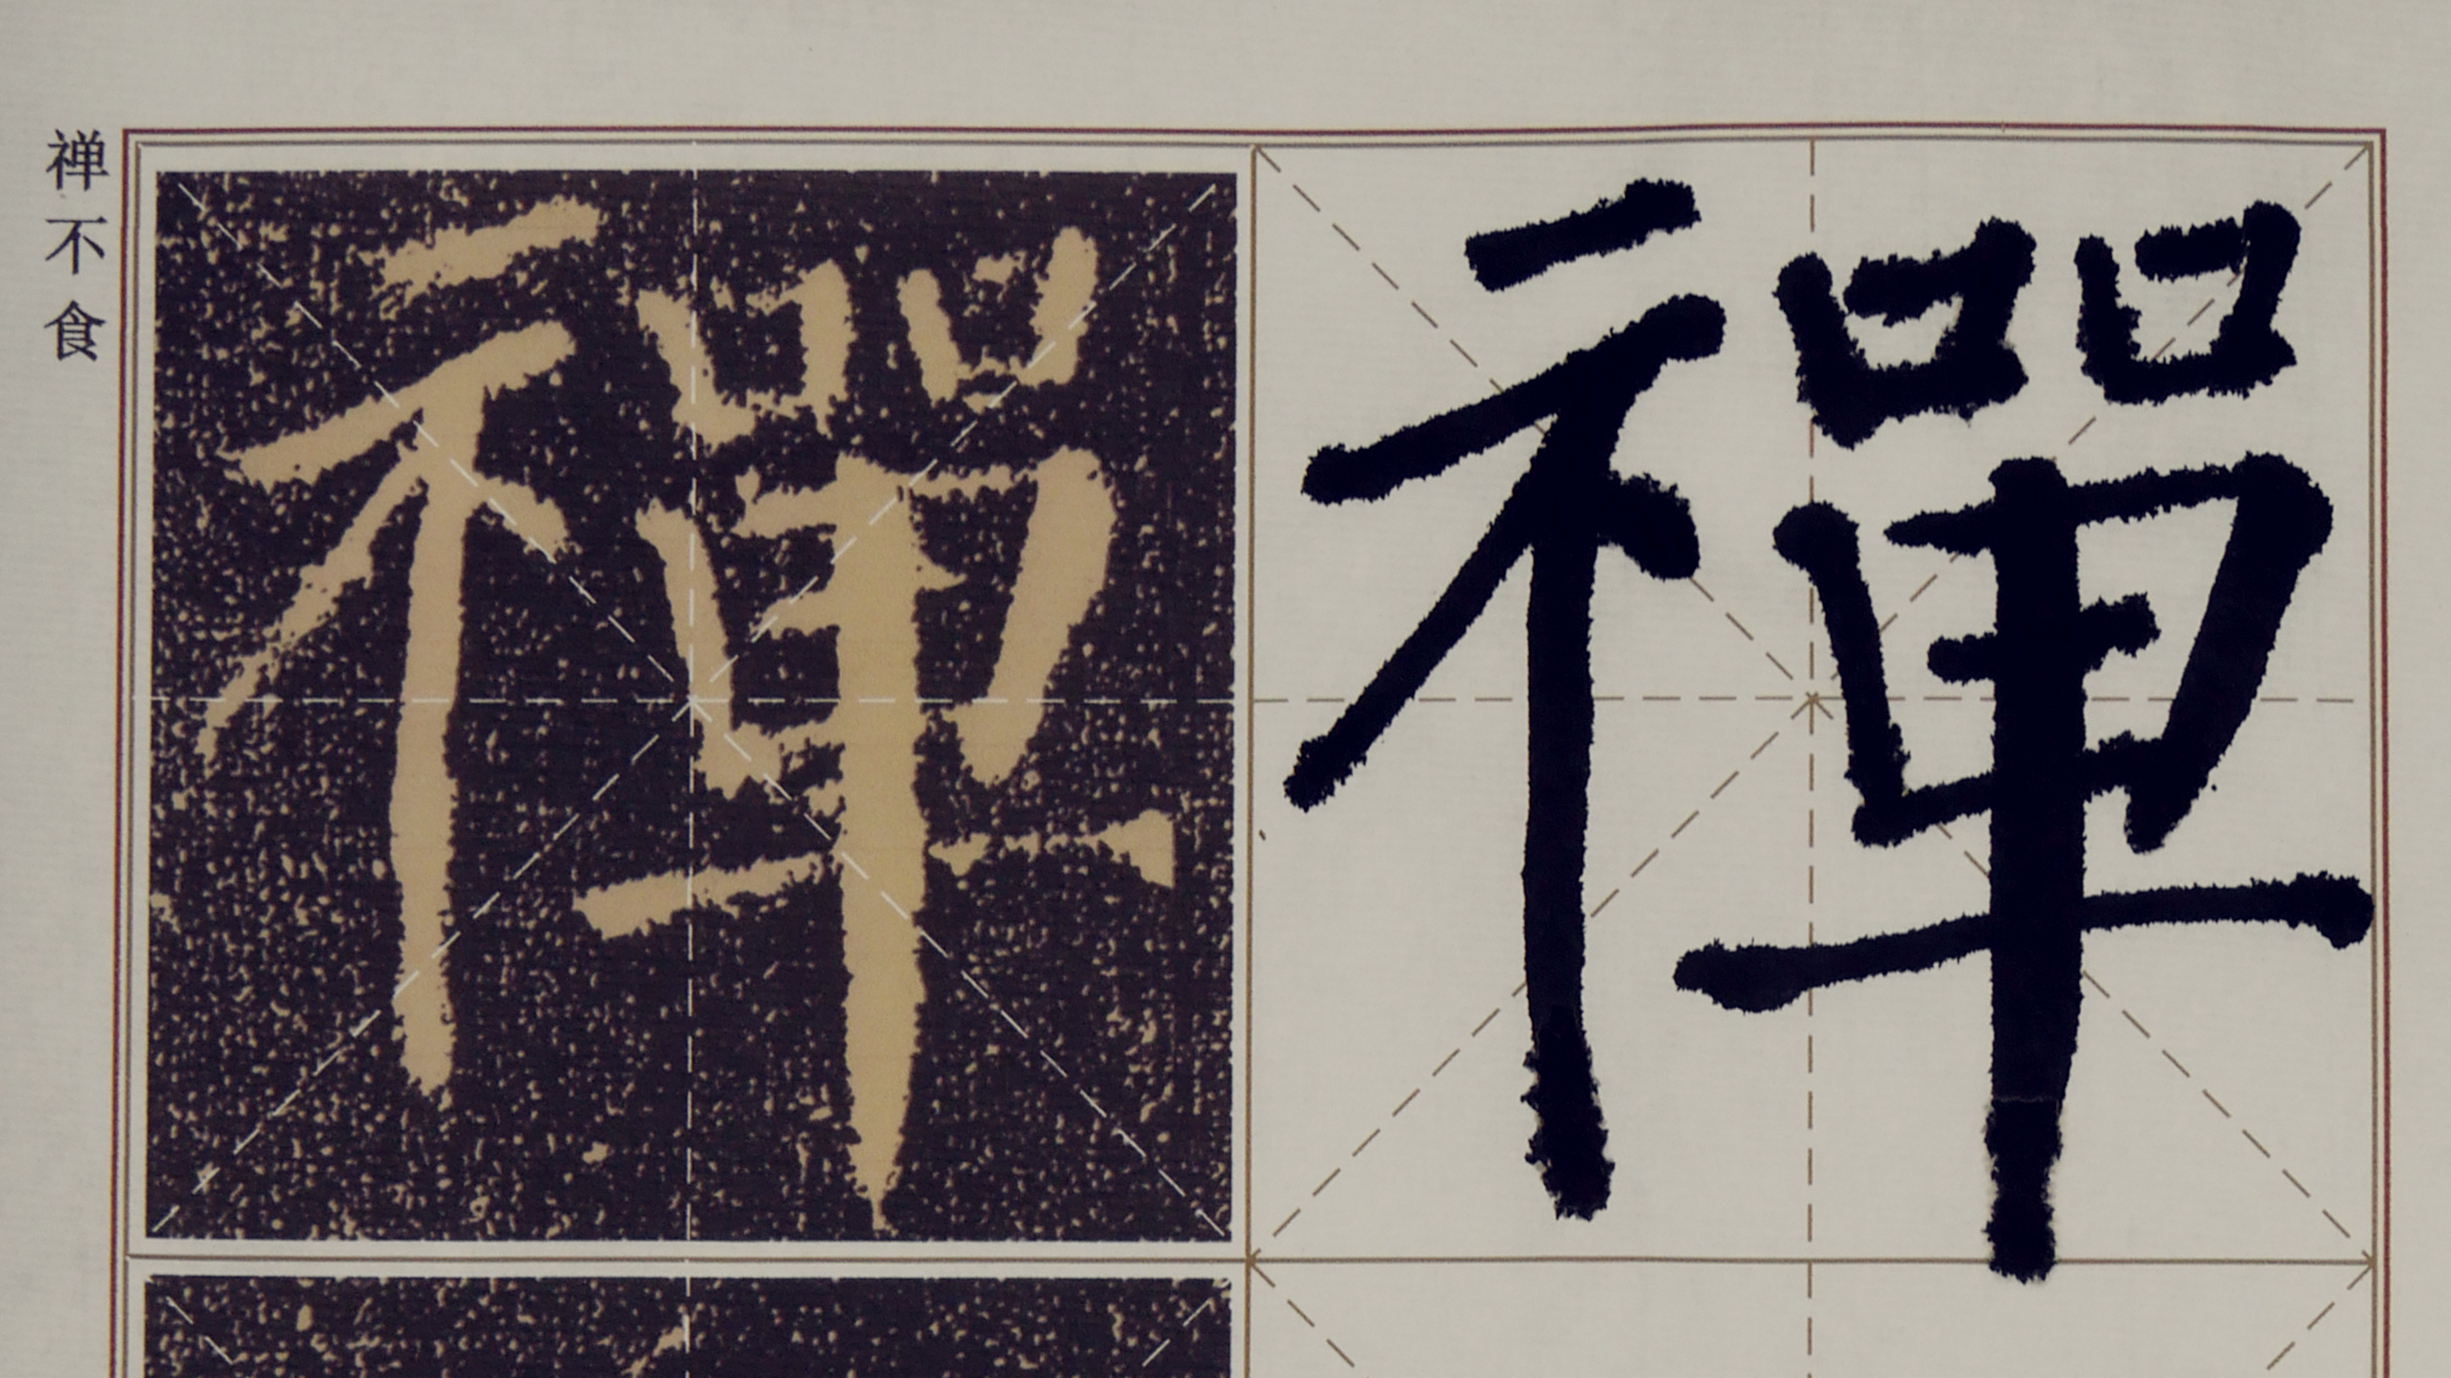 禅不食
禪
禪